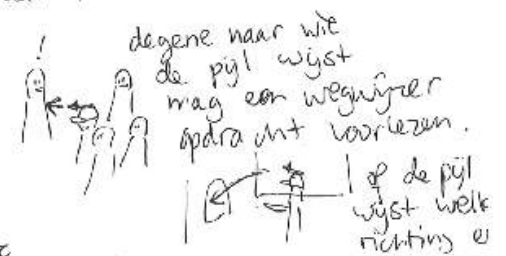 !
degene naar wie
de pijl wijst
mag een wegwijzer
opdracht voorlezen.
of de pijl
wijst welk
richting e